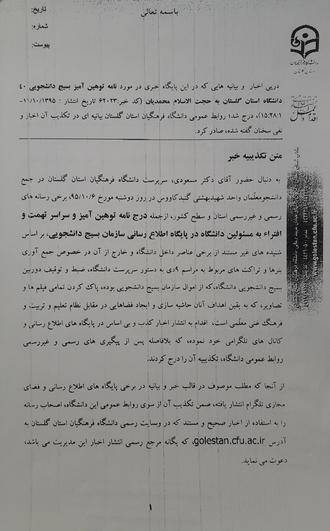 باسمه تعالی
تاریخ:
شماره:
پیوست:
درپی اخبار و بیانیه هایی که در این پایگاه خبری در مورد نامه توهین آمیز بسیج دانشجویی ۴۰
دانشگاه استان گلستان به حجت الاسلام محمدیان (کد خبر: ۶۲۰۲۳ تاریخ انتشار : ۱۳۹۵/۱۰/۱۱-
۱۵:۲۸)، درج شد؛ روابط عمومی دانشگاه فرهنگیان استان گلستان بیانیه ای در تکذیب آن اخبار و
نفی سخنان گفته شده، صادر کرد.
متن تکذیبیه خبر
به دنبال حضور آقای دکتر مسعودی، سرپرست دانشگاه فرهنگیان استان گلستان در جمع
دانشجومعلمان واحد شهیدبهشتی گنبدکاووس در روز دوشنبه مورخ ۹۵/۱۰/۶، برخی رسانه های
رسمی و غیررسمی استان و سطح کشور، ازجمله درج نامه توهین آمیز و سراسر تهمت و
افتراء به مسئولین دانشگاه در پایگاه اطلاع رسانی سازمان بسیج دانشجویی، بر اساس
شنیده های غیر مستند از برخی عناصر داخل دانشگاه و خارج از آن در خصوص جمع آوری
بنرها و تراکت های مربوط به مراسم ۹دی به دستور سرپرست دانشگاه، ضبط و توقیف دوربین
بسیج دانشجویی دانشگاه که از اموال سازمان بسیج دانشجویی بوده، پاک کردن تمامی فیلم ها و
تصاویر، که به یقین اهداف آنان حاشیه سازی و ایجاد فضاهایی در مقابل نظام تعلیم و تربیت و
فرهنگ غنی معلمی است، اقدام به انتشار اخبار کذب و بی اساس در پایگاه های اطلاع رسانی و
کانال های تلگرامی خود نموده، که بلافاصله پس از پیگیری های رسمی و غیررسمی
روابط عمومی دانشگاه، تکذیبیه آن را درج کردند.
از آنجا که مطلب موصوف در قالب خبر و بیانیه در برخی پایگاه های اطلاع رسانی و فضای
مجازی تلگرام انتشار یافته، ضمن تکذیب آن از سوی روابط عمومی این دانشگاه، اصحاب رسانه
را به استفاده از اخبار صحیح و مستند که در وبسایت رسمی دانشگاه فرهنگیان استان گلستان به
آدرس golestan.cfu.ac.ir، که یگانه مرجع رسمی انتشار اخبار این مدیریت می باشد،
دعوت می نماید.
۱